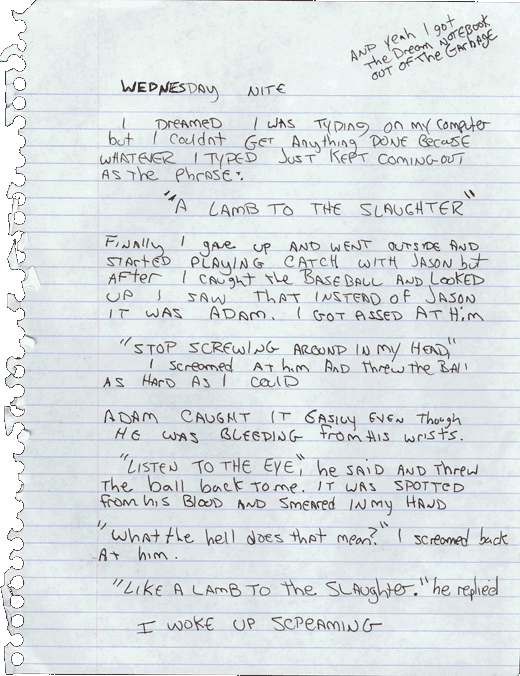 AND Yeah I got
the Dream NOTEBOOK
OUT OF THE GARBAGE
WEDNESDAY NITE
I DREAMED I WAS TYPING on my computer
but I couldnt GET Anything DONE BECAUSE
WHATEVER I TYPED JUST KEPT COMING OUT
AS The PhrASE:
"A LAMB TO THE SLAUGHTER"
FINALLY I gave up AND WENT OUTSIDE AND
STARTED PLAYING CATCH WITH JASON but
AFter I CAUGHT the BASEBALL AND LOOKED
UP I SAW THAT INSTEAD OF JASON
IT WAS ADAM. I GOT ASSED AT HiM
"STOP SCREWING AROUND IN MY HEAD"
I screamed AT him AND threw the BAll
AS HARD AS I COULD
ADAM CAUGHT IT EASILY EVEN Though
HE WAS BLEEDING from HIS WRISTS.
"LISTEN TO THE EYE", he SAID AND THREW
The ball back to me. IT WAS SPOTTED
from his BLOOD AND SMEARED IN MY HAND
"What the hell does that mean?" I screamed back
At him.
"LIKE A LAMB TO the SLAUghter." he replied
I WOKE UP SCREAMING